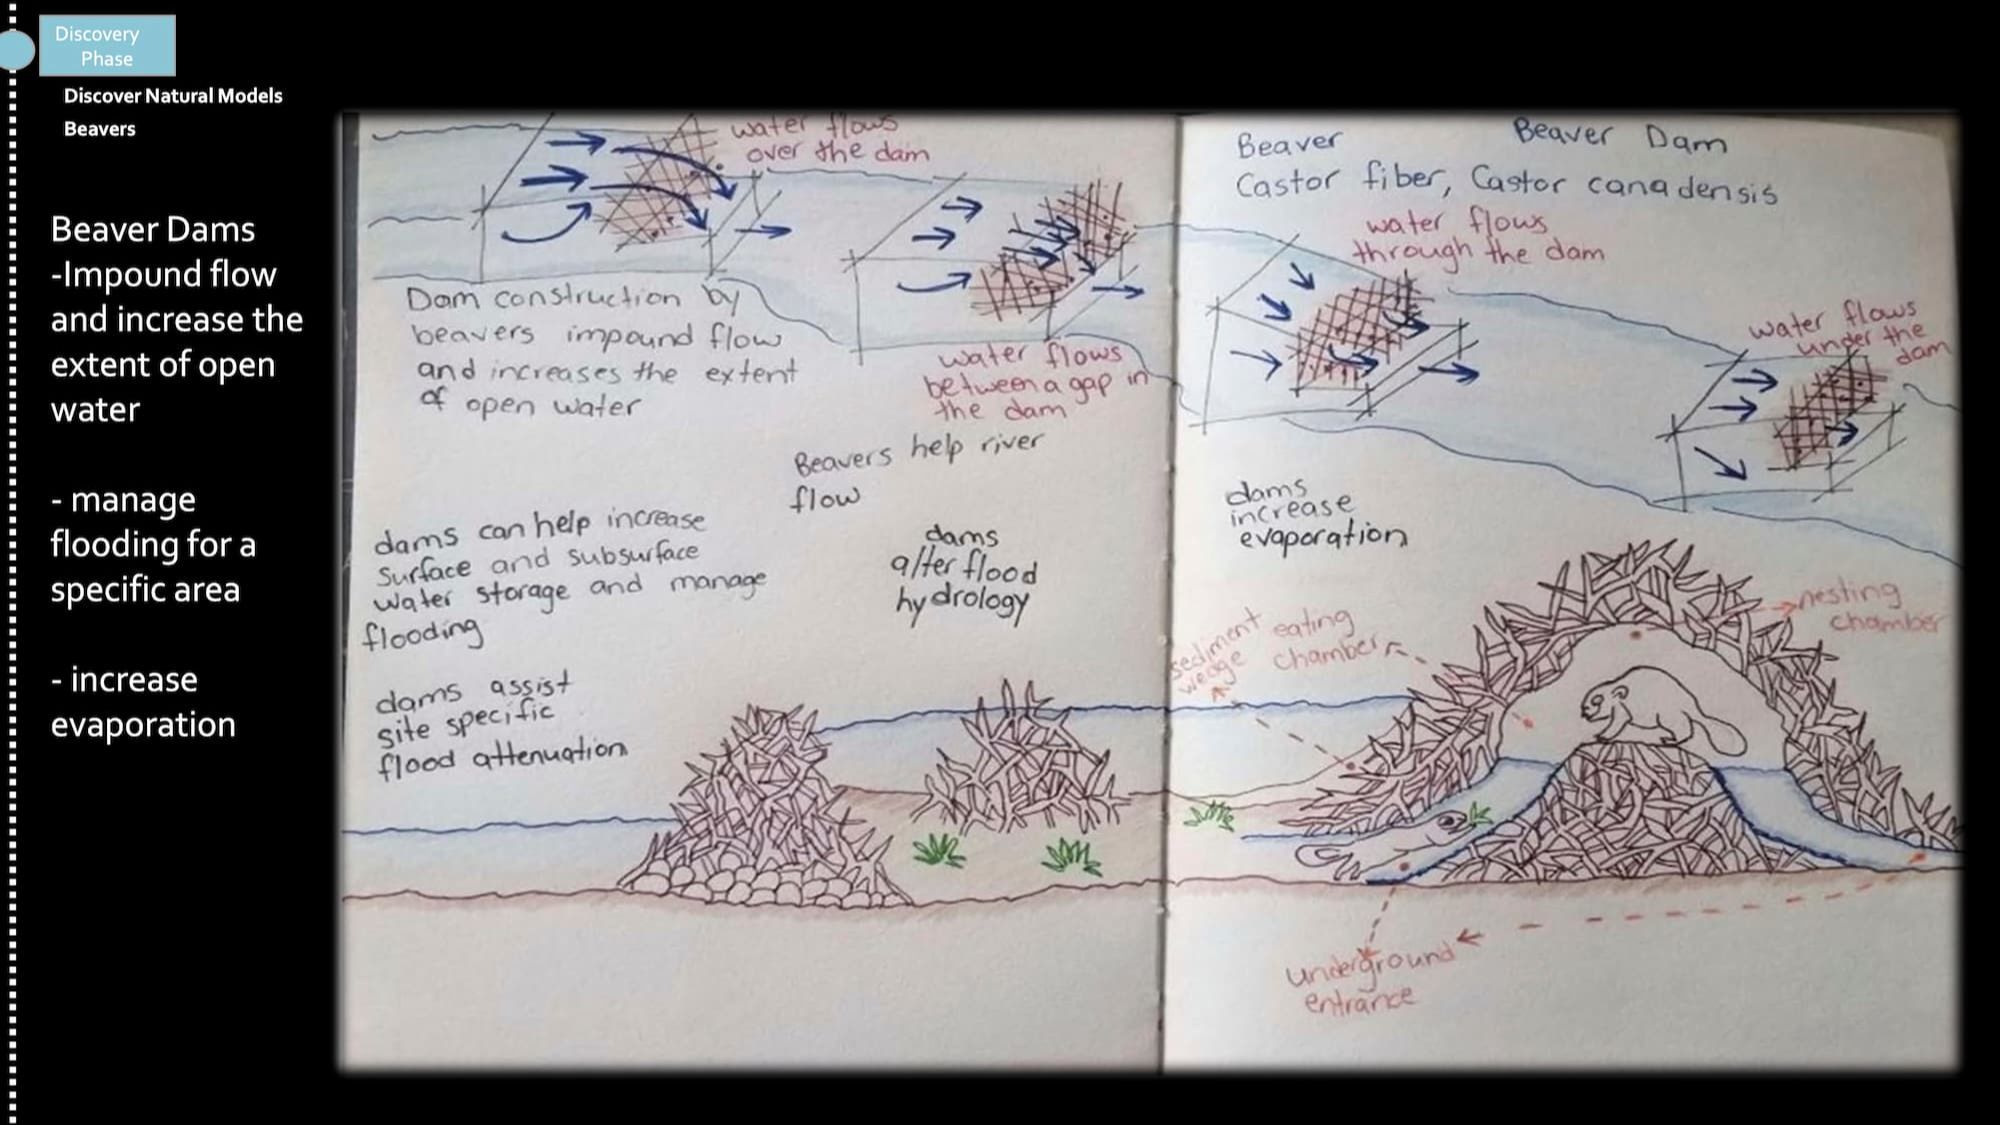 Discovery
Phase
Discover Natural Models
Beavers
Beaver Dams
-Impound flow
and increase the
extent of open
water
- manage
flooding for a
specific area
- increase
evaporation
water flows
over the dam
Dam construction by
beavers impound flow
and increases the extent
of open water
water flows
between a gap in
the dam
Beavers help river
flow
dams can help increase
surface and subsurface
water storage and manage
flooding
dams
alter flood
hydrology
dams assist
site specific
flood attenuation
Beaver
Beaver Dam
Castor fiber, Castor canadensis
water flows
through the dam
water flows
under the
dam
dams
increase
evaporation
sediment
wedge
eating
chamber
nesting
chamber
underground
entrance